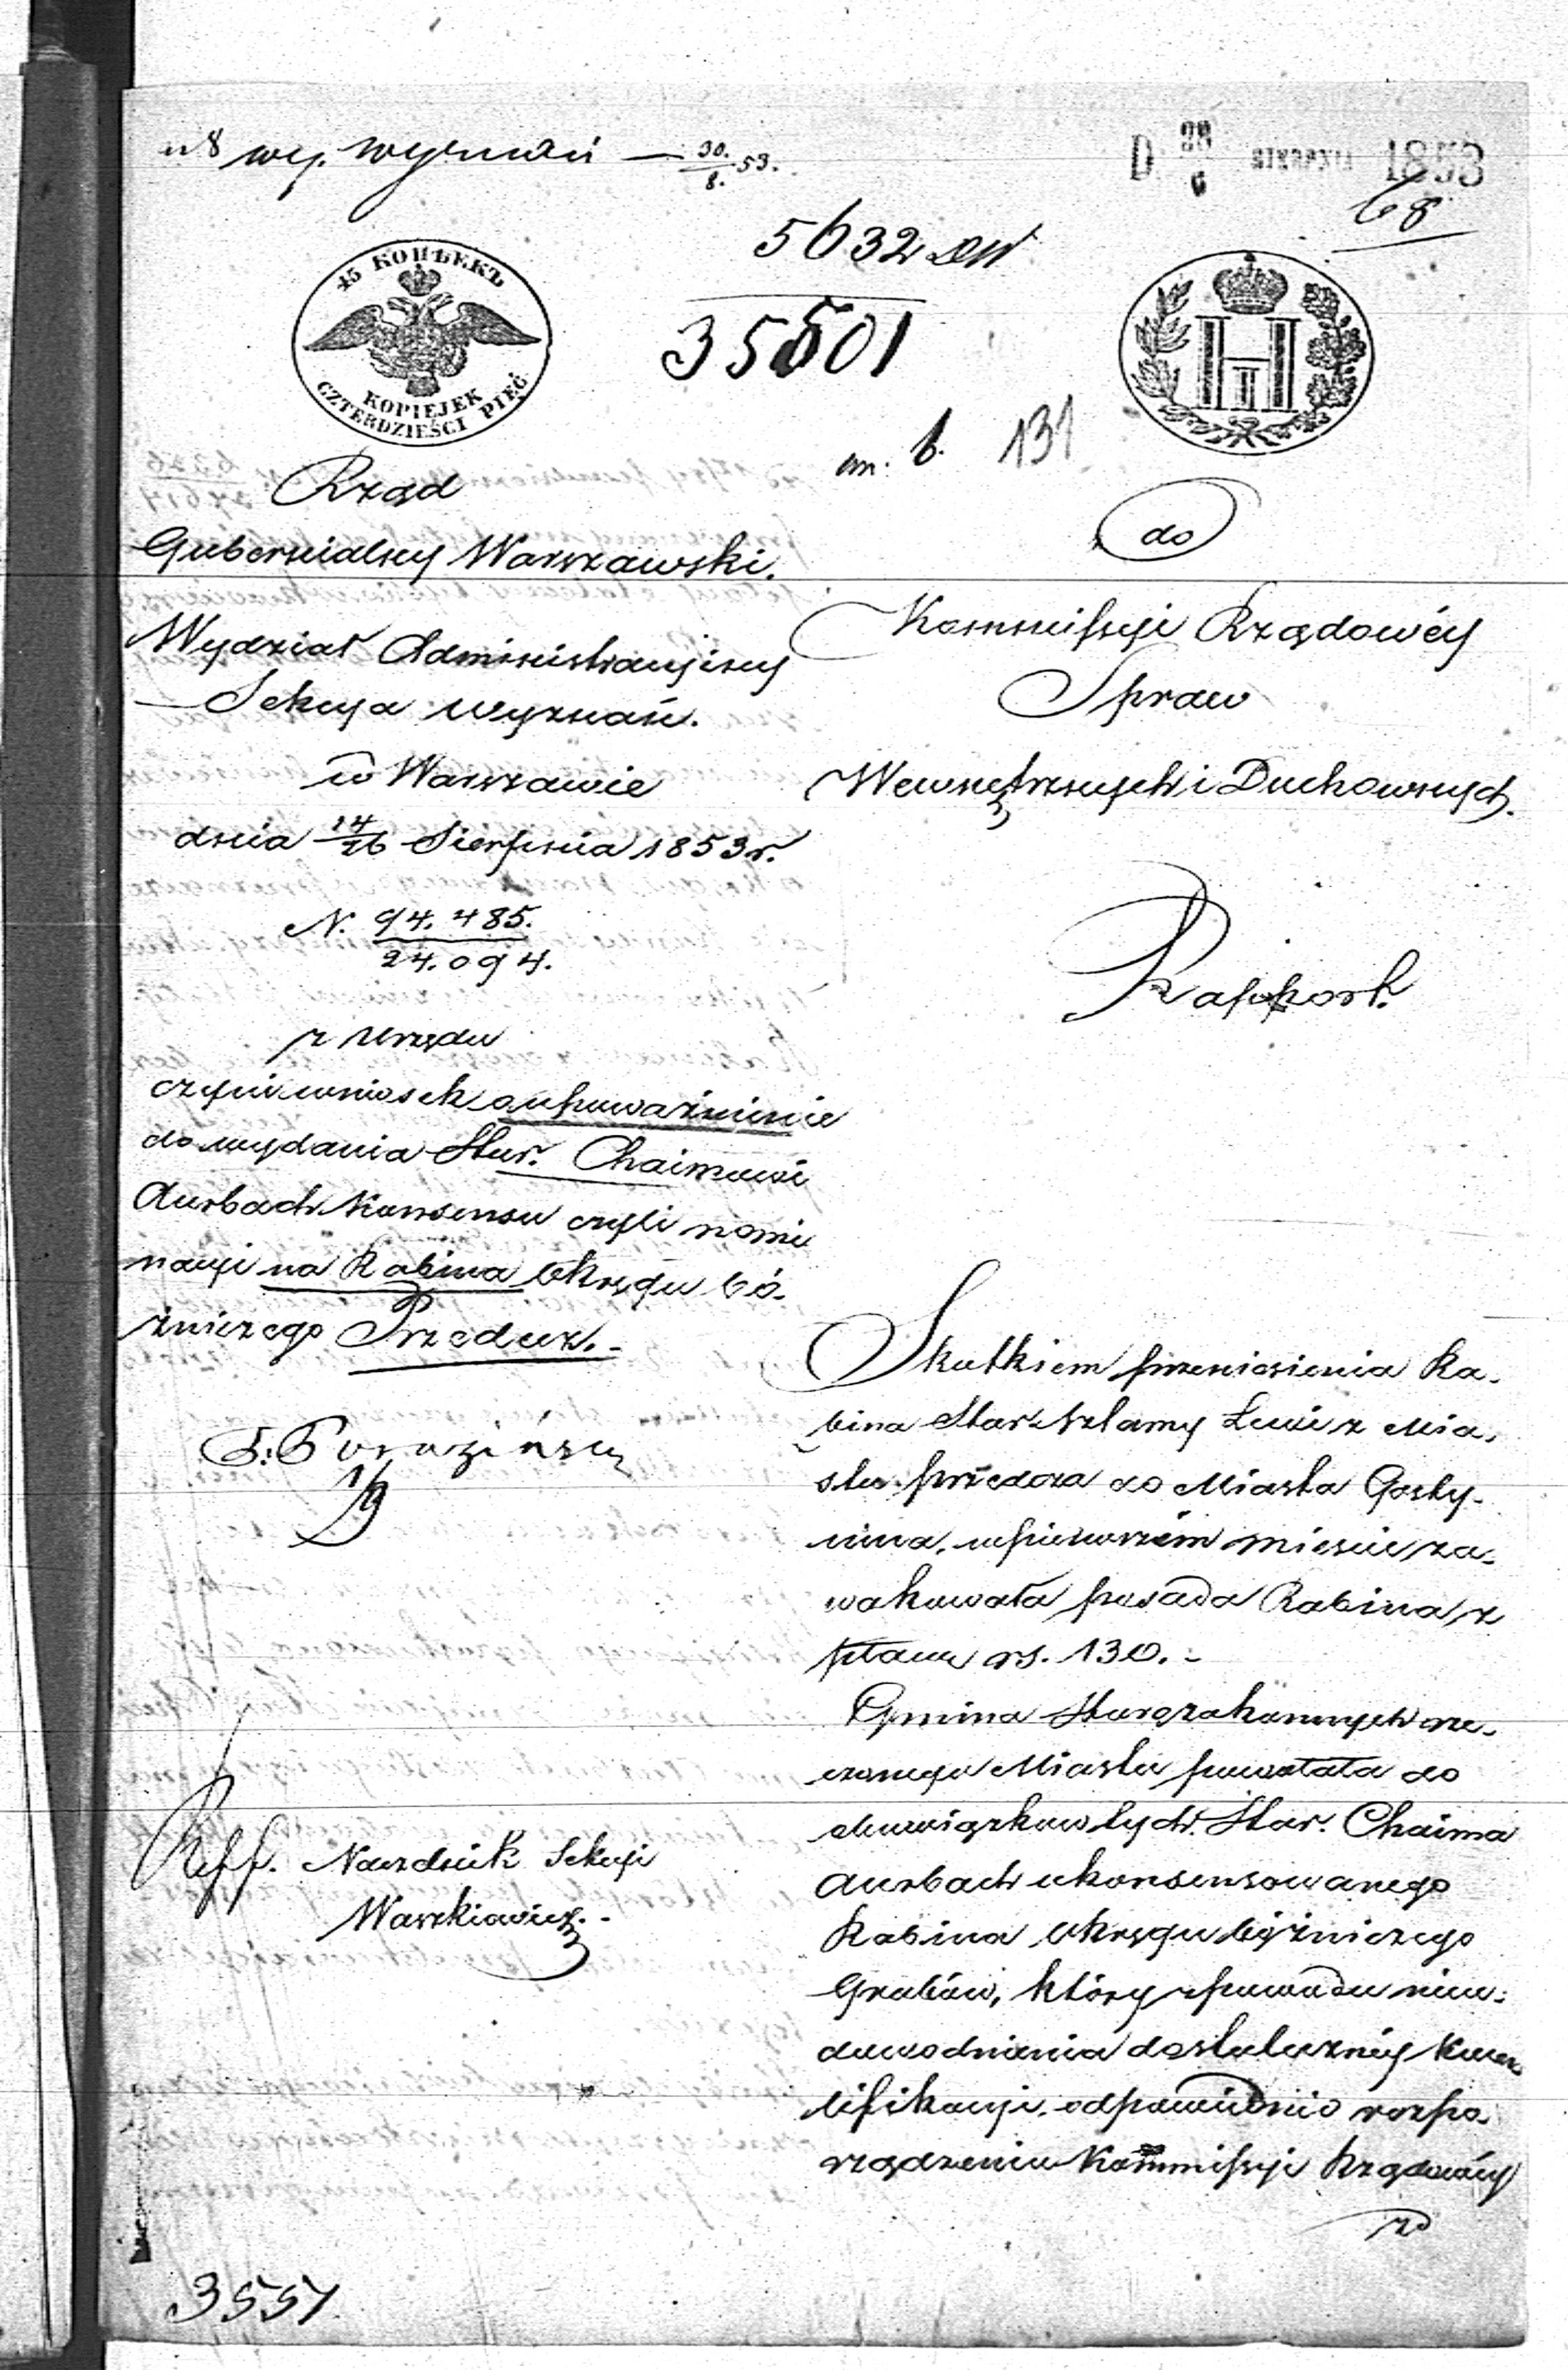 wy. wyznań — 30./8. 53.
D 1853
68
5632 DW
35501
45 КОПѢЕКЪ
KOPIEJEK
CZTERDZIEŚCI PIĘĆ
H II
b. 131
Rząd
Gubernialny Warszawski.
Wydział Administracyjny
Sekcya Wyznań.
w Warszawie
dnia 14/26 Sierpnia 1853 r.
N. 94.485.
24.094.
z Urzędu
czyni wniosek o upoważnienie
do wydania Star. Chaimowi
Aurbach Konsensu czyli nomi
nacyi na Rabina Okręgu bó-
żniczego Przedecz.-
1/9
Reff. Naczelnik Sekcyi
Waszkiewicz.-
3551
do
Kommissyi Rządowéy
Spraw
Wewnętrznych i Duchownych.
Rapport.
Skutkiem przeniesienia Ra-
bina Star. Szlamy Łucie z Mia-
sta Przedcza do Miasta Gosty-
nina, w pierwszém mieście za-
wakowała posada Rabina z
płacą rs. 130.-
Gmina Starozakonnych rze-
czonego Miasta powołała do
obowiązków tych Star. Chaima
Aurbach ukonsensowanego
Rabina Okręgu bóżniczego
Grabów, który z powodu nieu-
dowodnienia dostatecznéy kwa-
lifikacyi, odpowiednio rozpo-
rządzeniu Kommissyi Rządowéy
z d